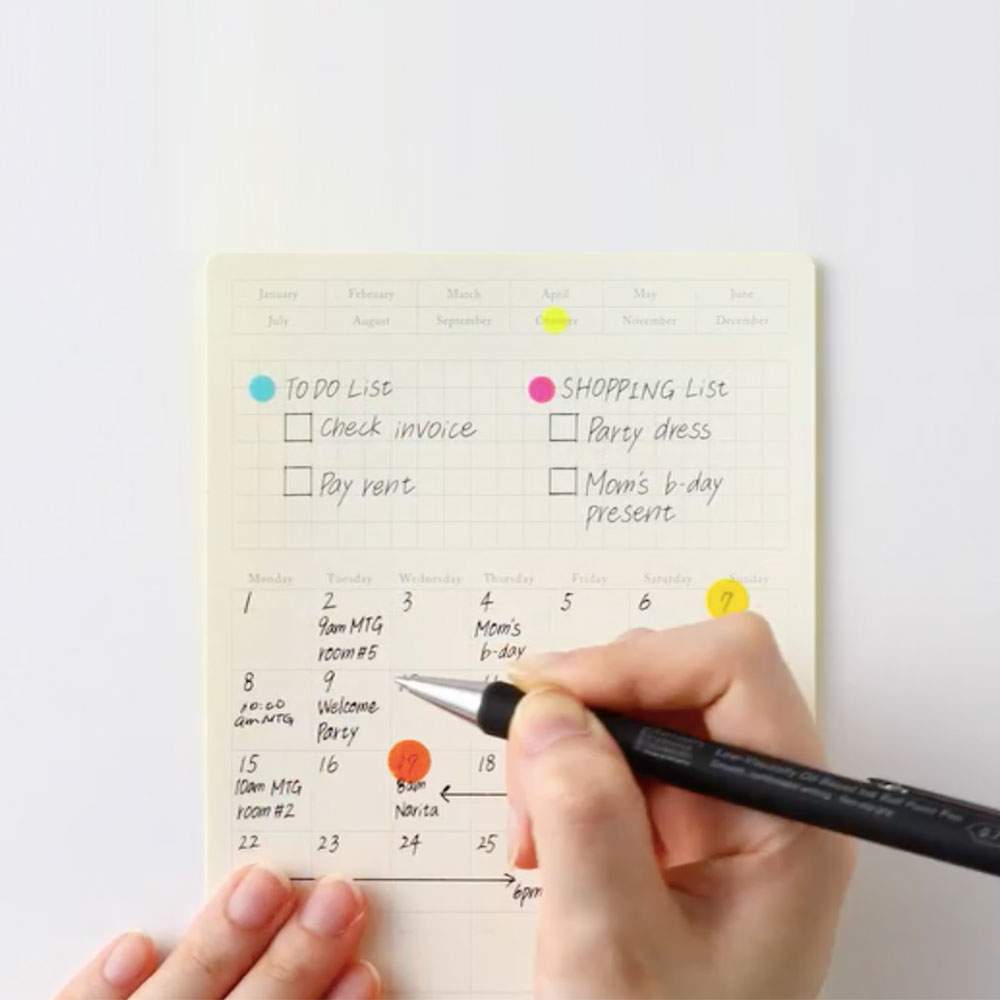 January February March April May June
July August September October November December
TO DO List
Check invoice
Pay rent
SHOPPING List
Party dress
Mom's b-day
present
Monday Tuesday Wednesday Thursday Friday Saturday Sunday
1 2 3 4 5 6 7
9am MTG
room #5
Mom's
b-day
8 9
10:00
am MTG
Welcome
Party
15 16 17 18
10am MTG
room #2
8am
Narita
22 23 24 25
6pm
Low-Viscosity Oil Based Ink Ball Point Pen